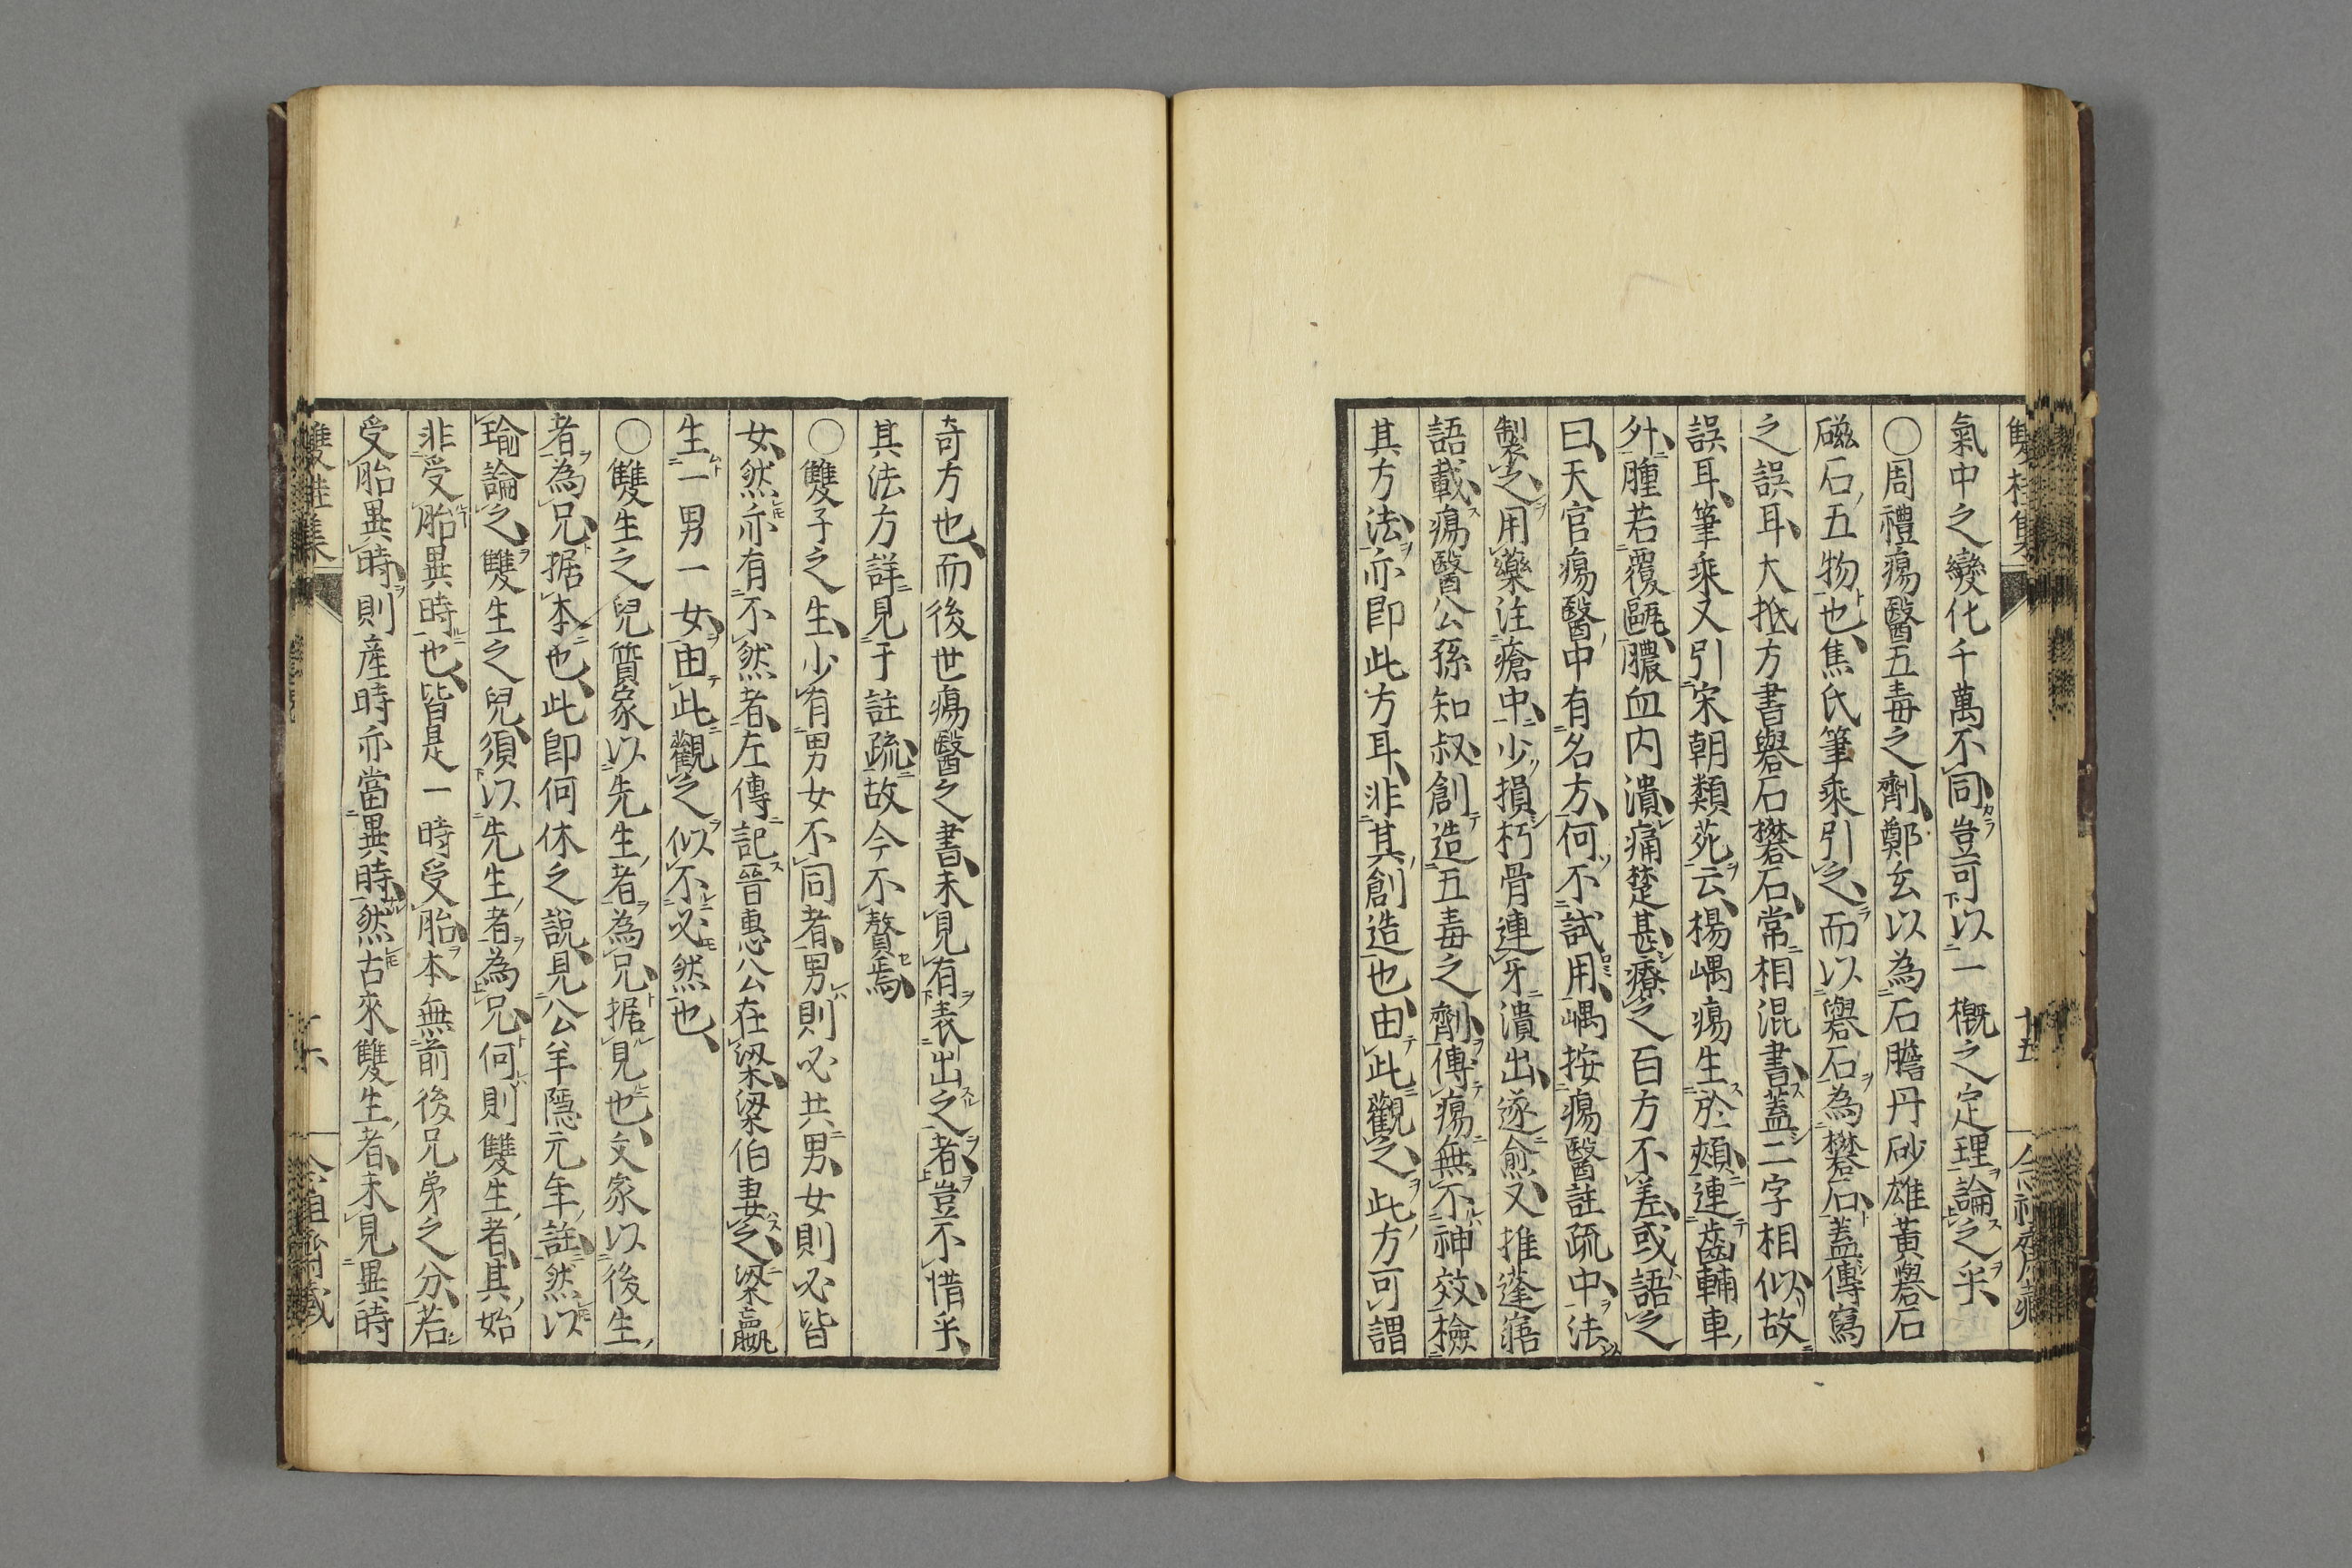 氣中之變化千萬不同豈可以一概之定理論之乎
○周禮瘍醫五毒之劑鄭玄以為石膽丹砂雄黃礜石
磁石五物也焦氏筆乘引之而以礜石為礬石蓋傳寫
之誤耳大抵方書礜石礬石常相混書蓋二字相似故
誤耳筆乘又引宋朝類苑云楊嵎瘍生於頰連齒輔車
外腫若覆甌膿血内潰痛楚甚療之百方不差或語之
曰天官瘍醫中有名方何不試用嵎按瘍醫註疏中法
製之用藥注瘡中少損朽骨連牙潰出遂愈又推蓬寤
語載瘍醫公孫知叔創造五毒之劑傳瘍無不神效檢
其方法亦即此方耳非其創造也由此觀之此方可謂
奇方也而後世瘍醫之書未見有表出之者豈不惜乎
其法方詳見于註疏故今不贅焉
○雙子之生少有男女不同者男則必共男女則必皆
女然亦有不然者左傳記晉惠公在梁梁伯妻之梁嬴
生一男一女由此觀之似不必然也
○雙生之兒質家以先生者為兄据見也文家以後生
者為兄据本也此即何休之說見公羊隱元年註然以
瑜論之雙生之兒須以先生者為兄何則雙生者其始
非受胎異時也皆是一時受胎本無前後兄弟之分若
受胎異時則産時亦當異時然古來雙生者未見異時